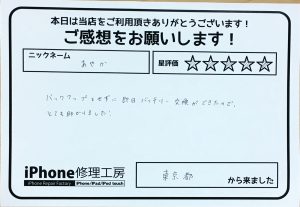 本日は当店をご利用頂きありがとうございます!
ご感想をお願いします!
ニックネーム
あやか
星評価 ☆☆☆☆☆
バックアップもせずに即日バッテリー交換ができたので、
とても助かりました!
iPhone修理工房
iPhone Repair Factory iPhone/iPad/iPod touch
東京都
から来ました